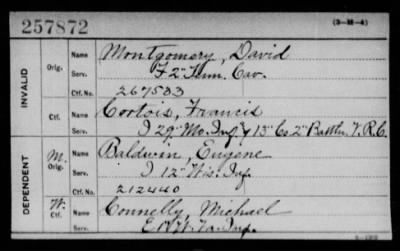 257872
(3-M-4)
INVALID
Orig. Name Montgomery, David
Serv. F 2" Tenn. Cav.
Ctf. No. 267533
Ctf. Name Cortois, Francis
Serv. I 29" Mo. Inf. & 13" Co 2" Battln. V.R.C.
DEPENDENT
M. Orig. Name Baldwin, Eugene
Serv. I 12" Wis. Inf.
Ctf. No. 212440
W. Ctf. Name Connelly, Michael
Serv. W. Va. Inf.